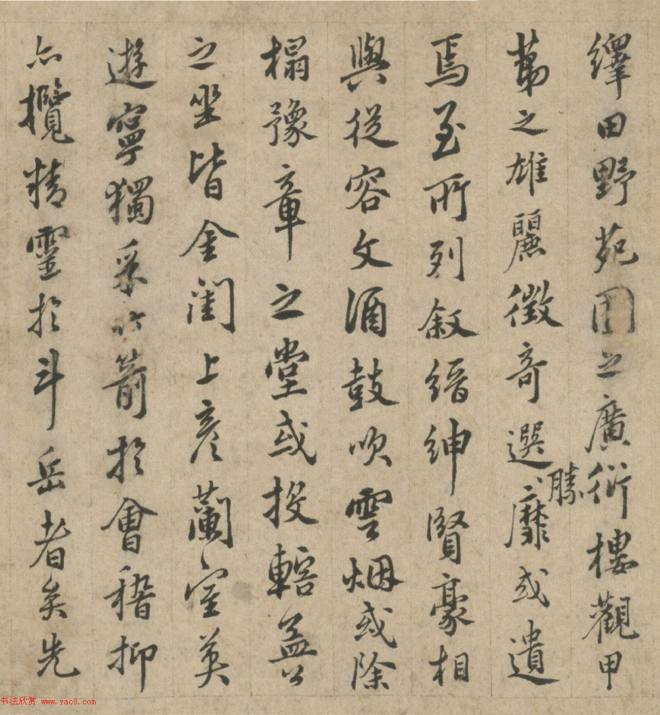 繹田野苑囿之廣衍樓觀甲
第之雄麗徵奇選勝靡或遺
焉至所列叙縉紳賢豪相
與從容文酒鼓吹雲烟或除
榻豫章之堂或投轄孟公
之坐皆金閨上彥蘭室英
遊寧獨采竹箭於會稽抑
亦攬精靈於斗岳者矣先
书法欣赏 www.yac8.com